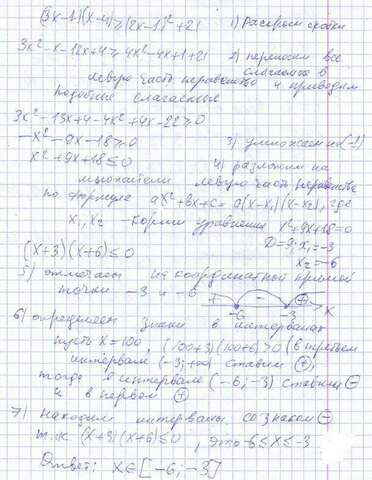 (3x-1)(x-4) ≥ (2x-1)² + 21 1) раскроем скобки
3x² - x - 12x + 4 ≥ 4x² - 4x + 1 + 21 2) переносим все
слагаемые в
левую часть неравенства и приводим
подобные слагаемые
3x² - 13x + 4 - 4x² + 4x - 22 ≥ 0
-x² - 9x - 18 ≥ 0 3) умножаем на (-1)
x² + 9x + 18 ≤ 0 4) разложим на
множители левую часть неравенства
по формуле ax² + bx + c = a(x-x₁)(x-x₂), где
x₁, x₂ - корни уравнения x² + 9x + 18 = 0
D = 9; x₁ = -3
x₂ = -6
(x+3)(x+6) ≤ 0
5) отмечаем на координатной прямой
точки -3 и -6
+ - + -6 -3 x
6) определяем знаки в интервалах
пусть x = 100, (100+3)(100+6) > 0 (в третьем
интервале (-3; +∞) ставим +,
тогда в интервале (-6; -3) ставим -
и в первом +
7) находим интервалы со знаком -
т.к. (x+3)(x+6) ≤ 0, это -6 ≤ x ≤ -3
Ответ: x ∈ [-6; -3]